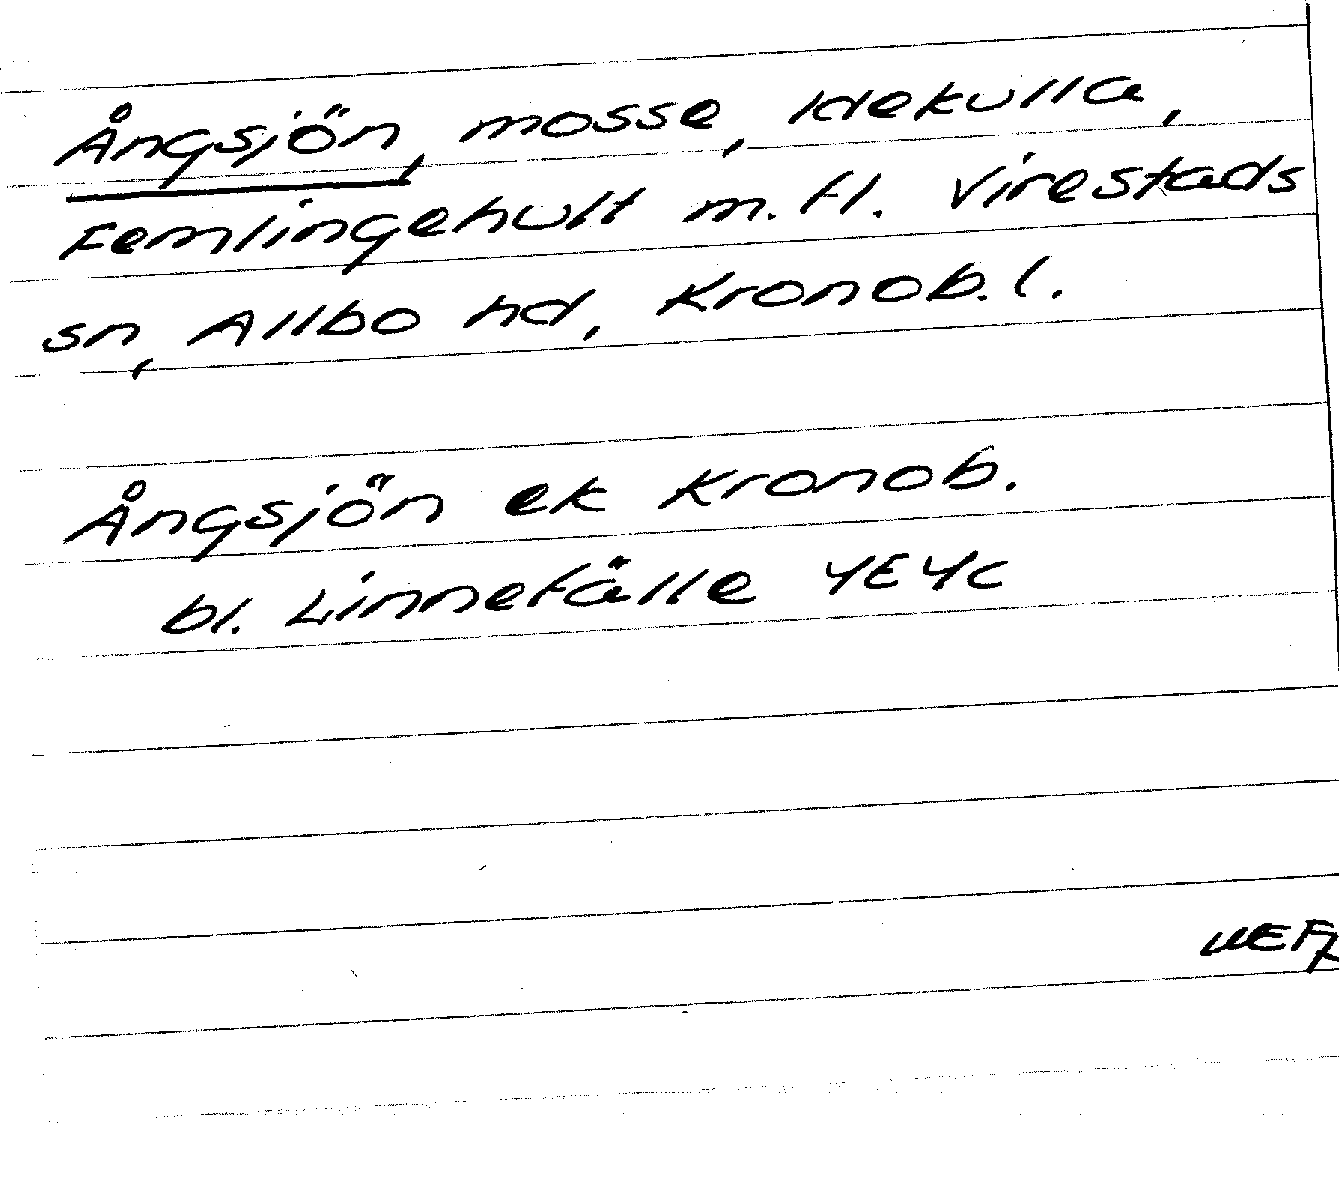 Ångsjön, mosse, Idekulla,
Femlingehult m.fl. Virestads
sn, Allbo hd, Kronob.l.
Ångsjön ek Kronob.
bl. Linnefälle 4E4c